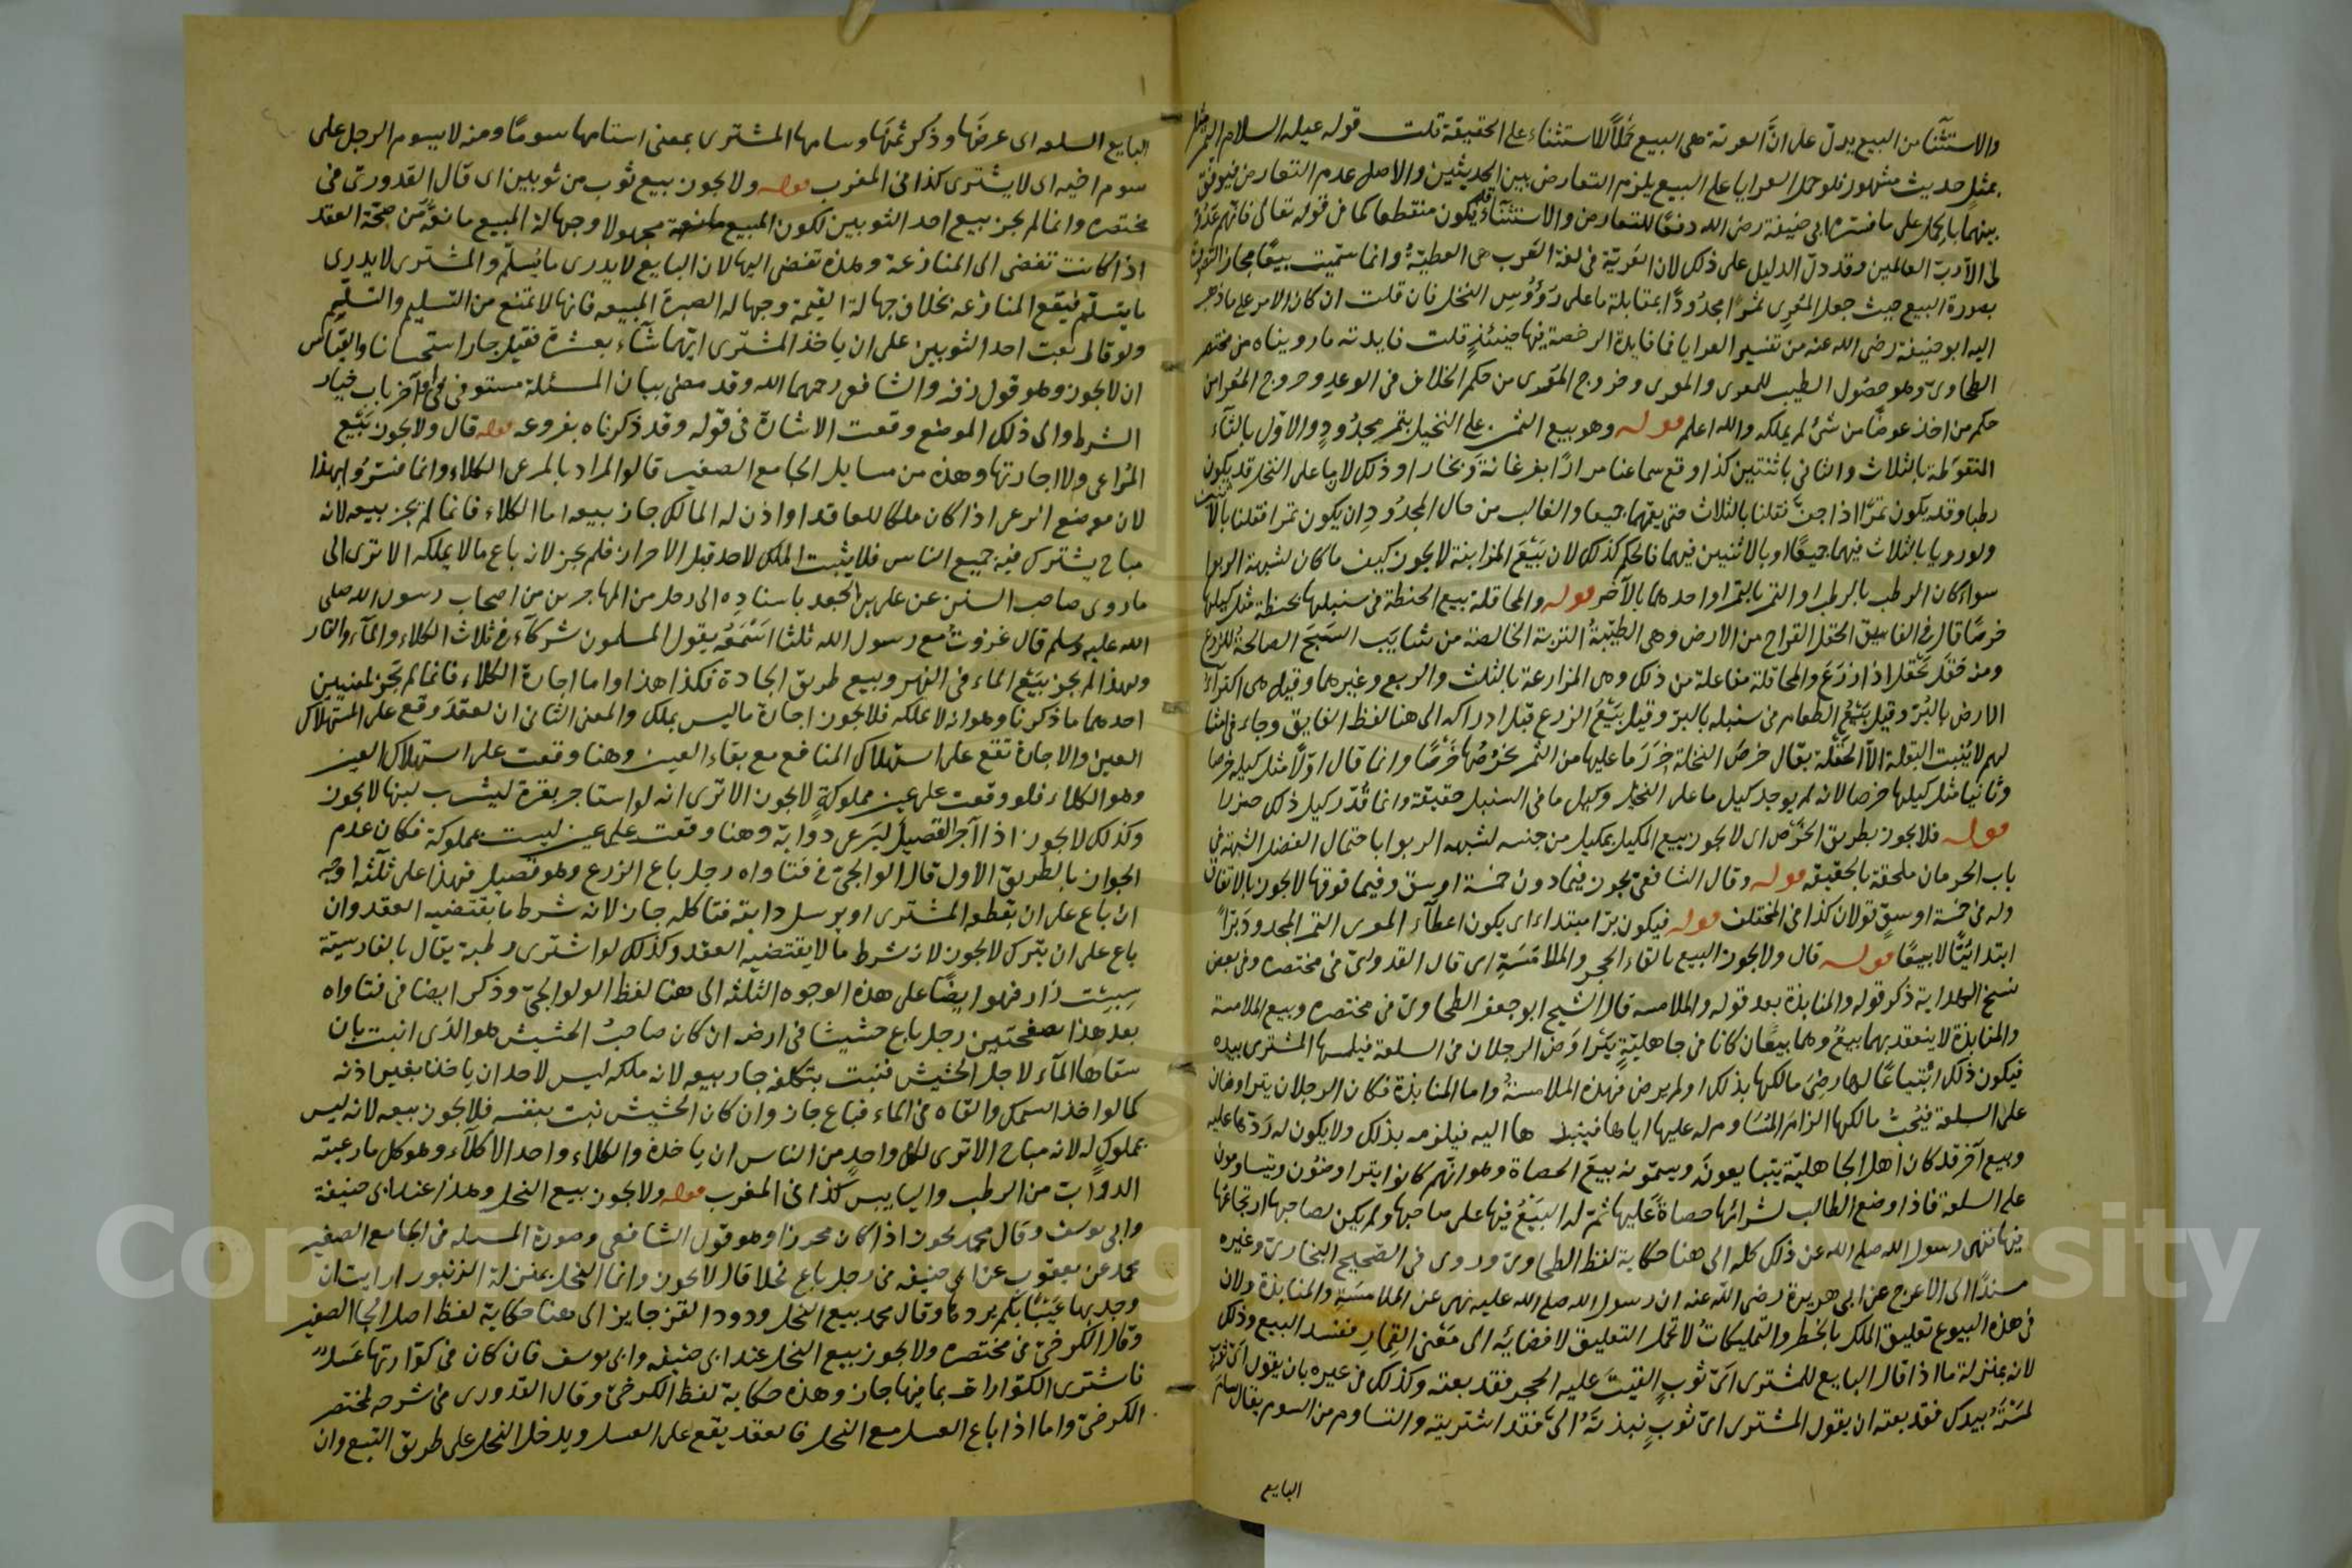 والاستثنا من البيع يدل على ان العرية هى البيع حملًا للاستثناء على الحقيقة قلت قوله عليه السلام التمر
بمثل حديث مشهور فلو حمل العرايا على البيع يلزم التعارض بين الحديثين والاصل عدم التعارض فيوفق
بينهما بالحمل على ما فسّره ابى حنيفة رضى الله دفعًا للتعارض والاستثناء قد يكون منقطعا كما فى قوله تعالى فانهم عدو
لى الّا ربّ العالمين وقد دلّ الدليل على ذلك لان العَريّة فى لغة العَرب هى العطيّة وانما سمّيت بيعًا مجازا
بصورة البيع حيث جعل المُعْرِى تمرًا مجدُودًا بمقابلة ما على رَؤُوسِ النخل فان قلت ان كان الامر على ما ذهب
اليه ابو حنيفة رضى الله عنه من تفسير العرايا فما فايدة الرخصة فيها حينئذٍ قلت فايدته ما رويناه من مختصر
الطحاوىّ وهو حصُول الطيب للمعرى والمعرى وخروج المعرى من حكم الخلاف فى الوعدِ وخروج المعرا من
حكم من اخذ عوضًا من شئ لم يملكه والله اعلم قوله وهو بيع الثمر على النخيل بتمر مجدُودٍ والاوّل بالثاء
المنقوطة بالثلاث والثانى باثنتين كذا وقع سماعنا مرارًا بفرغانة وبخارا وذلك لان ما على النخل قد يكون
رطبا وقد يكون تمرًا اذا جفّ فقلنا بالثلاث حتى يعمّهما جميعا والغالب من حال المجدُودِ ان يكون تمرا فقلنا
ولو رويا بالثلاث فيهما جميعًا او بالاثنين فيهما فالحكم كذلك لان بَيْعَ المزابنة لا يجوز كيف ما كان لشبهة الربوا
سواء كان الرطب بالرطب او التمر بالتمر او احدهما بالآخر قوله والمحاقلة بيع الحنطة فى سنبلها بحنطة مثل كيلها
خرصًا قال فى الفايق الحقل القراح من الارض وهى الطيّبةُ التربة الخالصة من شايب السبخ الصالحةُ للزرع
ومنه حقل يَحْقل اذا زرَعَ والمحاقلة مفاعلة من ذلك وهى المزارعة بالثلث والربع وغيرهما وقيل هى اكتراء
الارض بالبُرّ وقيل بَيْعُ الطعام فى سنبله بالبرّ وقيل بَيْعُ الزرع قبل ادراكه الى هنا لفظ الفايق وجاء فى امثا
لهم لا يُنبت البقلة الّا الحَقْلة يقال خرصَ النخلة حَزَرَ ما عليها من الثمر يخرُصُها خَرْصًا وانما قال اوّلًا مثل كيله خرصا
وثانيا مثل كيلها خرصا لانه لم يوجد كيل ما على النخل وكيل ما فى السنبل حقيقة وانما قُدّر كيل ذلك حزرا
قوله فلا يجوز بطريق الخَرْص اى لا يجوز بيع المكيل بمكيل من جنسه لشبهه الربوا باحتمال الفضل الشبهة فى
باب الحرمان ملحقة بالحقيقه قوله وقال الشافعى يجوز فيما دون خمسة اوسق وفيما فوقها لا يجوز بالاتفاق
وله فى خمسة اوسقٍ قولان كذا فى المختلف قوله فيكون برّا مبتداء اى يكون اعطاء المعرى التمر المجدود برّا
ابتدائيّا لا بيعًا قوله قال ولا يجوز البيع بالقاء الحجر والملامَسَةِ اى قال القدورىّ فى مختصره وفى بعض
نسخ الهداية ذكر قوله والمنابذة بعد قوله والملامسه قال الشيخ ابو جعفر الطحاوىّ فى مختصره وبيع الملامسة
والمنابذة لا ينعقد بهما بيعٌ وهما بيعَان كانا فى جاهليّةٍ يَتَراوَض الرجلان فى السلعة فيلمسها المشترى بيده
فيكون ذلك ابْتِياعًا لها رضِىَ مالكها بذلك او لم يرض فهذه الملامسةُ واما المنابذة فكان الرجلان يتراوضان
على السلعة فيُحِبّ مالكها الزامَ المُسَاوم له عليها اياها فينبذ ها اليه فيلزمه بذلك ولا يكون له رَدّها عليه
وبيع آخر قد كان أهل الجاهليّة يتبايعونَه ويسمّونه بيعَ الحصاة وهو انّهم كانوا يتراوضُون ويتساومون
على السلعة فاذا وضع الطالب لشرائها حصاةً عَليها ثمّ له البَيْعُ فيها على صاحبها ولم يكن لصاحبها ارتجاعُها
فيها فنهى رسول الله صلى الله عن ذلك كله الى هنا حكاية لفظ الطحاوىّ وروى فى الصّحيح البخارىّ وغيره
مسندًا الى الاعرج عن ابى هريرة رضى الله عنه ان رسول الله صلى الله عليه نهى عن الملامَسَةِ والمنابذة ولان
فى هذه البيوع تعليق الملك بالخطر والتمليكاتُ لا تحمل التعليق لافضايه الى مَعْنى القِمارِ ففسد البيع وذلك
لانه بمنزلة ما اذا قال البايع للمشترى اىّ ثوبٍ القيتَ عليه الحجر فقد بعته وكذلك فى غيره بان يقول اىّ ثوب
لمَسْتَهُ بيدك فقد بعته ان يقول المشترى اىّ ثوبٍ نبذتَهُ الىَّ فقد اشتريته والتساوم من السوم يقال سامَ
البايع
البايع السلعه اى عرضَها وذكر ثمنَها وسامها المشترى بمعنى استامها سومًا ومنه لا يسوم الرجل على
سوم اخيه اى لا يشترى كذا فى المغرب قوله ولا يجوز بيع ثوب من ثوبين اى قال القدورىّ فى
مختصره وانما لم يجز بيع احد الثوبين لكون المبيع مجهولا وجهالة المبيع مانعة من صحّة العقد
اذا كانت تفضى الى المنازعة وهذه تفضى اليها لان البايع لا يدرى ما يُسلّم والمشترى لا يدرى
ما يتسلّم فيقع المنازعه بخلاف جهالة القيمة وجهاله الصبرة المبيعه فانها لا تمنع من التسليم والتسلّم
ولو قال بعت احد الثوبين على ان ياخذ المشترى ايّهما شآء بعشرة فقيل جاز استحسانا والقياس
ان لا يجوز وهو قول زفر والشافعى رحمهما الله وقد مضى بيان المسئلة مستوفى فى آخر باب خيار
الشرط والى ذلك الموضع وقعت الاشارة فى قوله وقد ذكرناه بفروعه قوله قال ولا يجوز بَيْع
المُرَاعى ولا اجارتها وهذه من مسايل الجامع الصغير قالوا المراد بالمرعى الكلاء وانما فسّرُوا بهذا
لان موضع الرعى اذا كان ملكا للعاقد او اذن له المالك جاز بيعه اما الكلاء فانما لم يجز بيعه لانه
مباح يشترك فيه جميع الناس فلا يثبت الملك لاحد قبل الاحراز فلم يجز لانه باع ما لا يملكه الا ترى الى
ما روى صاحب السنن عن على بن الجعد باسنادِه الى رجل من المهاجرين من اصحاب رسول الله صلى
الله عليه وسلم قال غزوتُ مع رسول الله ثلثا اسْمَعُه يقول المسلمون شركآء فى ثلاث الكلاء والمآء والنار
ولهذا لم يجز بَيْع الماء فى النهر وبيع طريق الجادة فكذا هذا واما اجارة الكلاء فانما لم تجز لمعنيين
احدهما ما ذكرنا وهو انه لا يملكه فلا يجوز اجارة ما ليس بملك والمعنى الثانى ان لعقد وقع على استهلاك
العين والاجارة تقع على استهلاك المنافع مع بقاء العين وهنا وقعت على استهلاك العين
وهو الكلاء فلو وقعت على عين مملوكةٍ لا يجوز الا ترى انه لو استاجر بقرة ليشرب لبنها لا يجوز
وكذلك لا يجوز اذا آجر القصيل ليَرعى دوابّه وهنا وقعت على عين ليست بمملوكة فكان عدم
الجواز بالطريق الاولى قال الوالجىّ فى فتاواه رجل باع الزرع وهو قصيل فهذا على ثلثه اوجه
ان باع على ان يقطعه المشترى او يرسل دابته فتاكله جاز لانه شرط ما يقتضيه العقد وان
باع على ان يترك لا يجوز لانه شرط ما لا يقتضيه العقد وكذلك لو اشترى رطبة يقال بالفارسيّة
سِبِسْت زار فهو ايضًا على هذه الوجوه الثلثه الى هنا لفظ الولوالجىّ وذكر ايضا فى فتاواه
بعد هذا بصفحتين رجل باع حشيشا فى ارضه ان كان صاحبُ الحشيش هو الذى انبت بان
سقاها المآء لاجل الحشيش فنبت بتكلفه جاز بيعه لانه ملكه ليس لاحد ان ياخذ بغير اذنه
كما لو اخذ السمك والقاه فى الماء فباع جاز وان كان الحشيش نبت بنفسه فلا يجوز بيعه لانه ليس
بمملوكٍ له لانه مباح الا ترى لكل واحدٍ من الناس ان ياخذه والكلاء واحد الاكلآء وهو كل ما رعته
الدوابّ من الرطب واليابِس كذا فى المغرب قوله ولا يجوز بيع النحل وهذا عند ابى حنيفة
وابى يوسف وقال محمد يجوز اذا كان محرزا وهو قول الشافعى وصورة المسئله فى الجامع الصغير
محمد عن يعقوب عن ابى حنيفه فى رجل باع نحلا قال لا يجوز وانما النحل بمنزلة الزنبور ارايت ان
وجد بها عَيْبًا بكم يردها وقال محمد بيع النحل ودود القز جايز الى هنا حكاية لفظ اصل الجا الصغير
وقال الكرخىّ فى مختصره ولا يجوز بيع النحل عند ابى حنيفه وابى يوسف فان كان فى كوّارتها عَسلٌ
فاشترى الكوّارات بما فيها جاز وهذه حكاية لفظ الكرخىّ وقال القدورى فى شرحه لمختصر
الكرخىّ واما اذا باع العسل مع النحل فالعقد يقع على العسل ويدخل النحل على طريق التبع وان
Copyright © King Saud University